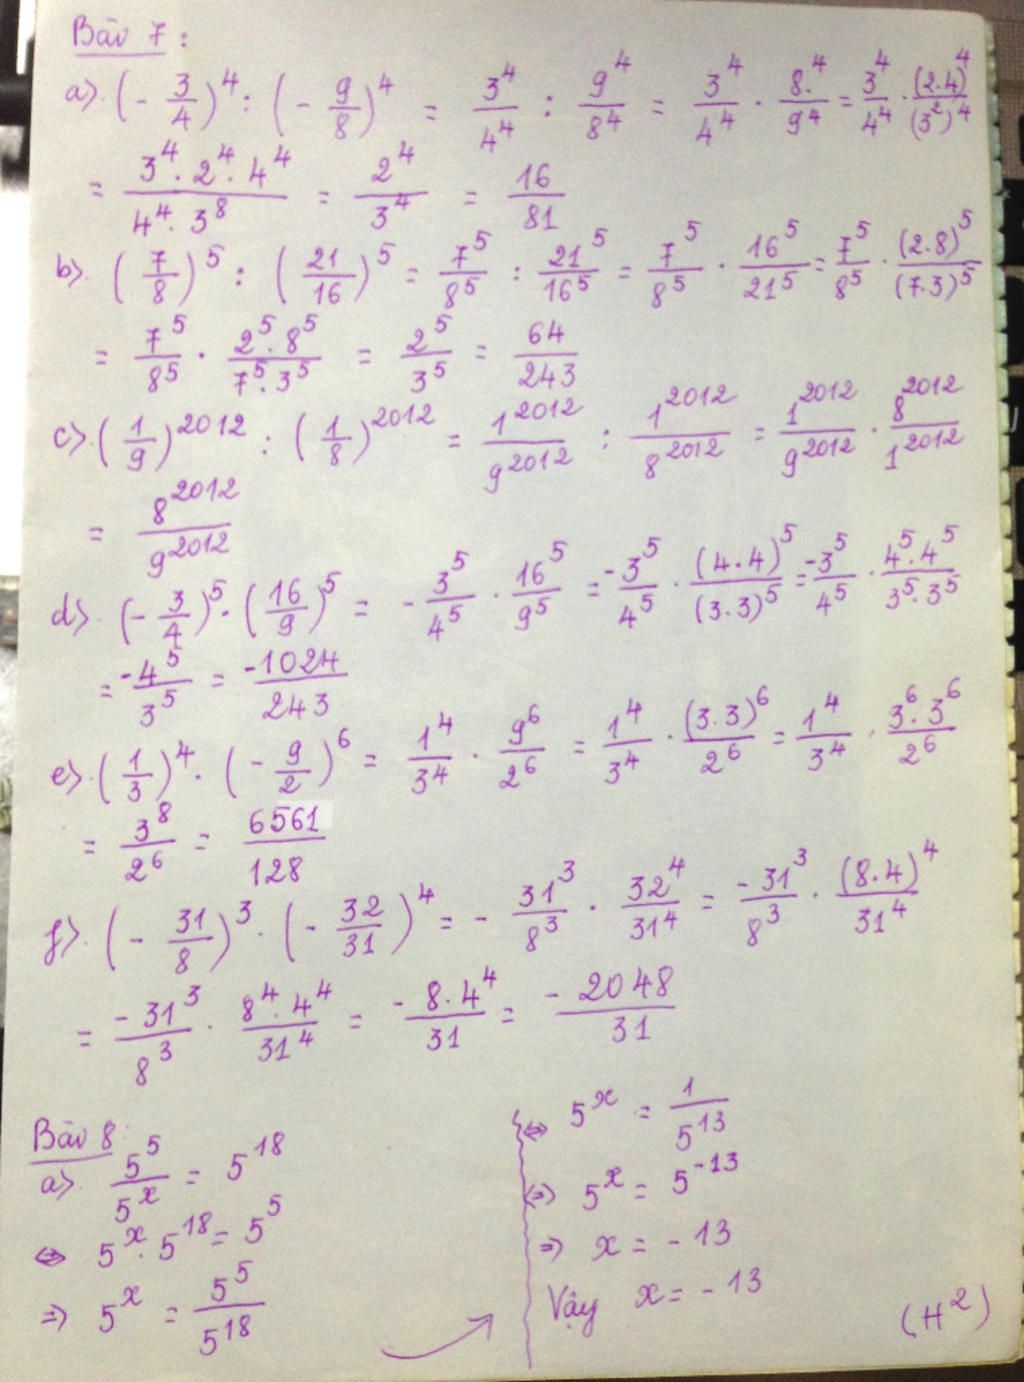 Bài 7 :
a) (- 3/4)^4 : (- 9/8)^4 = 3^4/4^4 : 9^4/8^4 = 3^4/4^4 . 8^4/9^4 = 3^4/4^4 . (2.4)^4/(3^2)^4
= 3^4.2^4.4^4/4^4.3^8 = 2^4/3^4 = 16/81
b) (7/8)^5 : (21/16)^5 = 7^5/8^5 : 21^5/16^5 = 7^5/8^5 . 16^5/21^5 = 7^5/8^5 . (2.8)^5/(7.3)^5
= 7^5/8^5 . 2^5.8^5/7^5.3^5 = 2^5/3^5 = 64/243
c) (1/9)^2012 : (1/8)^2012 = 1^2012/9^2012 : 1^2012/8^2012 = 1^2012/9^2012 . 8^2012/1^2012
= 8^2012/9^2012
d) (- 3/4)^5 . (16/9)^5 = - 3^5/4^5 . 16^5/9^5 = -3^5/4^5 . (4.4)^5/(3.3)^5 = -3^5/4^5 . 4^5.4^5/3^5.3^5
= -4^5/3^5 = -1024/243
e) (1/3)^4 . (- 9/2)^6 = 1^4/3^4 . 9^6/2^6 = 1^4/3^4 . (3.3)^6/2^6 = 1^4/3^4 . 3^6.3^6/2^6
= 3^8/2^6 = 6561/128
f) (- 31/8)^3 . (- 32/31)^4 = - 31^3/8^3 . 32^4/31^4 = -31^3/8^3 . (8.4)^4/31^4
= -31^3/8^3 . 8^4.4^4/31^4 = -8.4^4/31 = -2048/31
Bài 8
a) 5^5/5^x = 5^18
⇔ 5^x . 5^18 = 5^5
⇒ 5^x = 5^5/5^18
⇔ 5^x = 1/5^13
⇔ 5^x = 5^-13
⇒ x = -13
Vậy x = -13
(H^2)